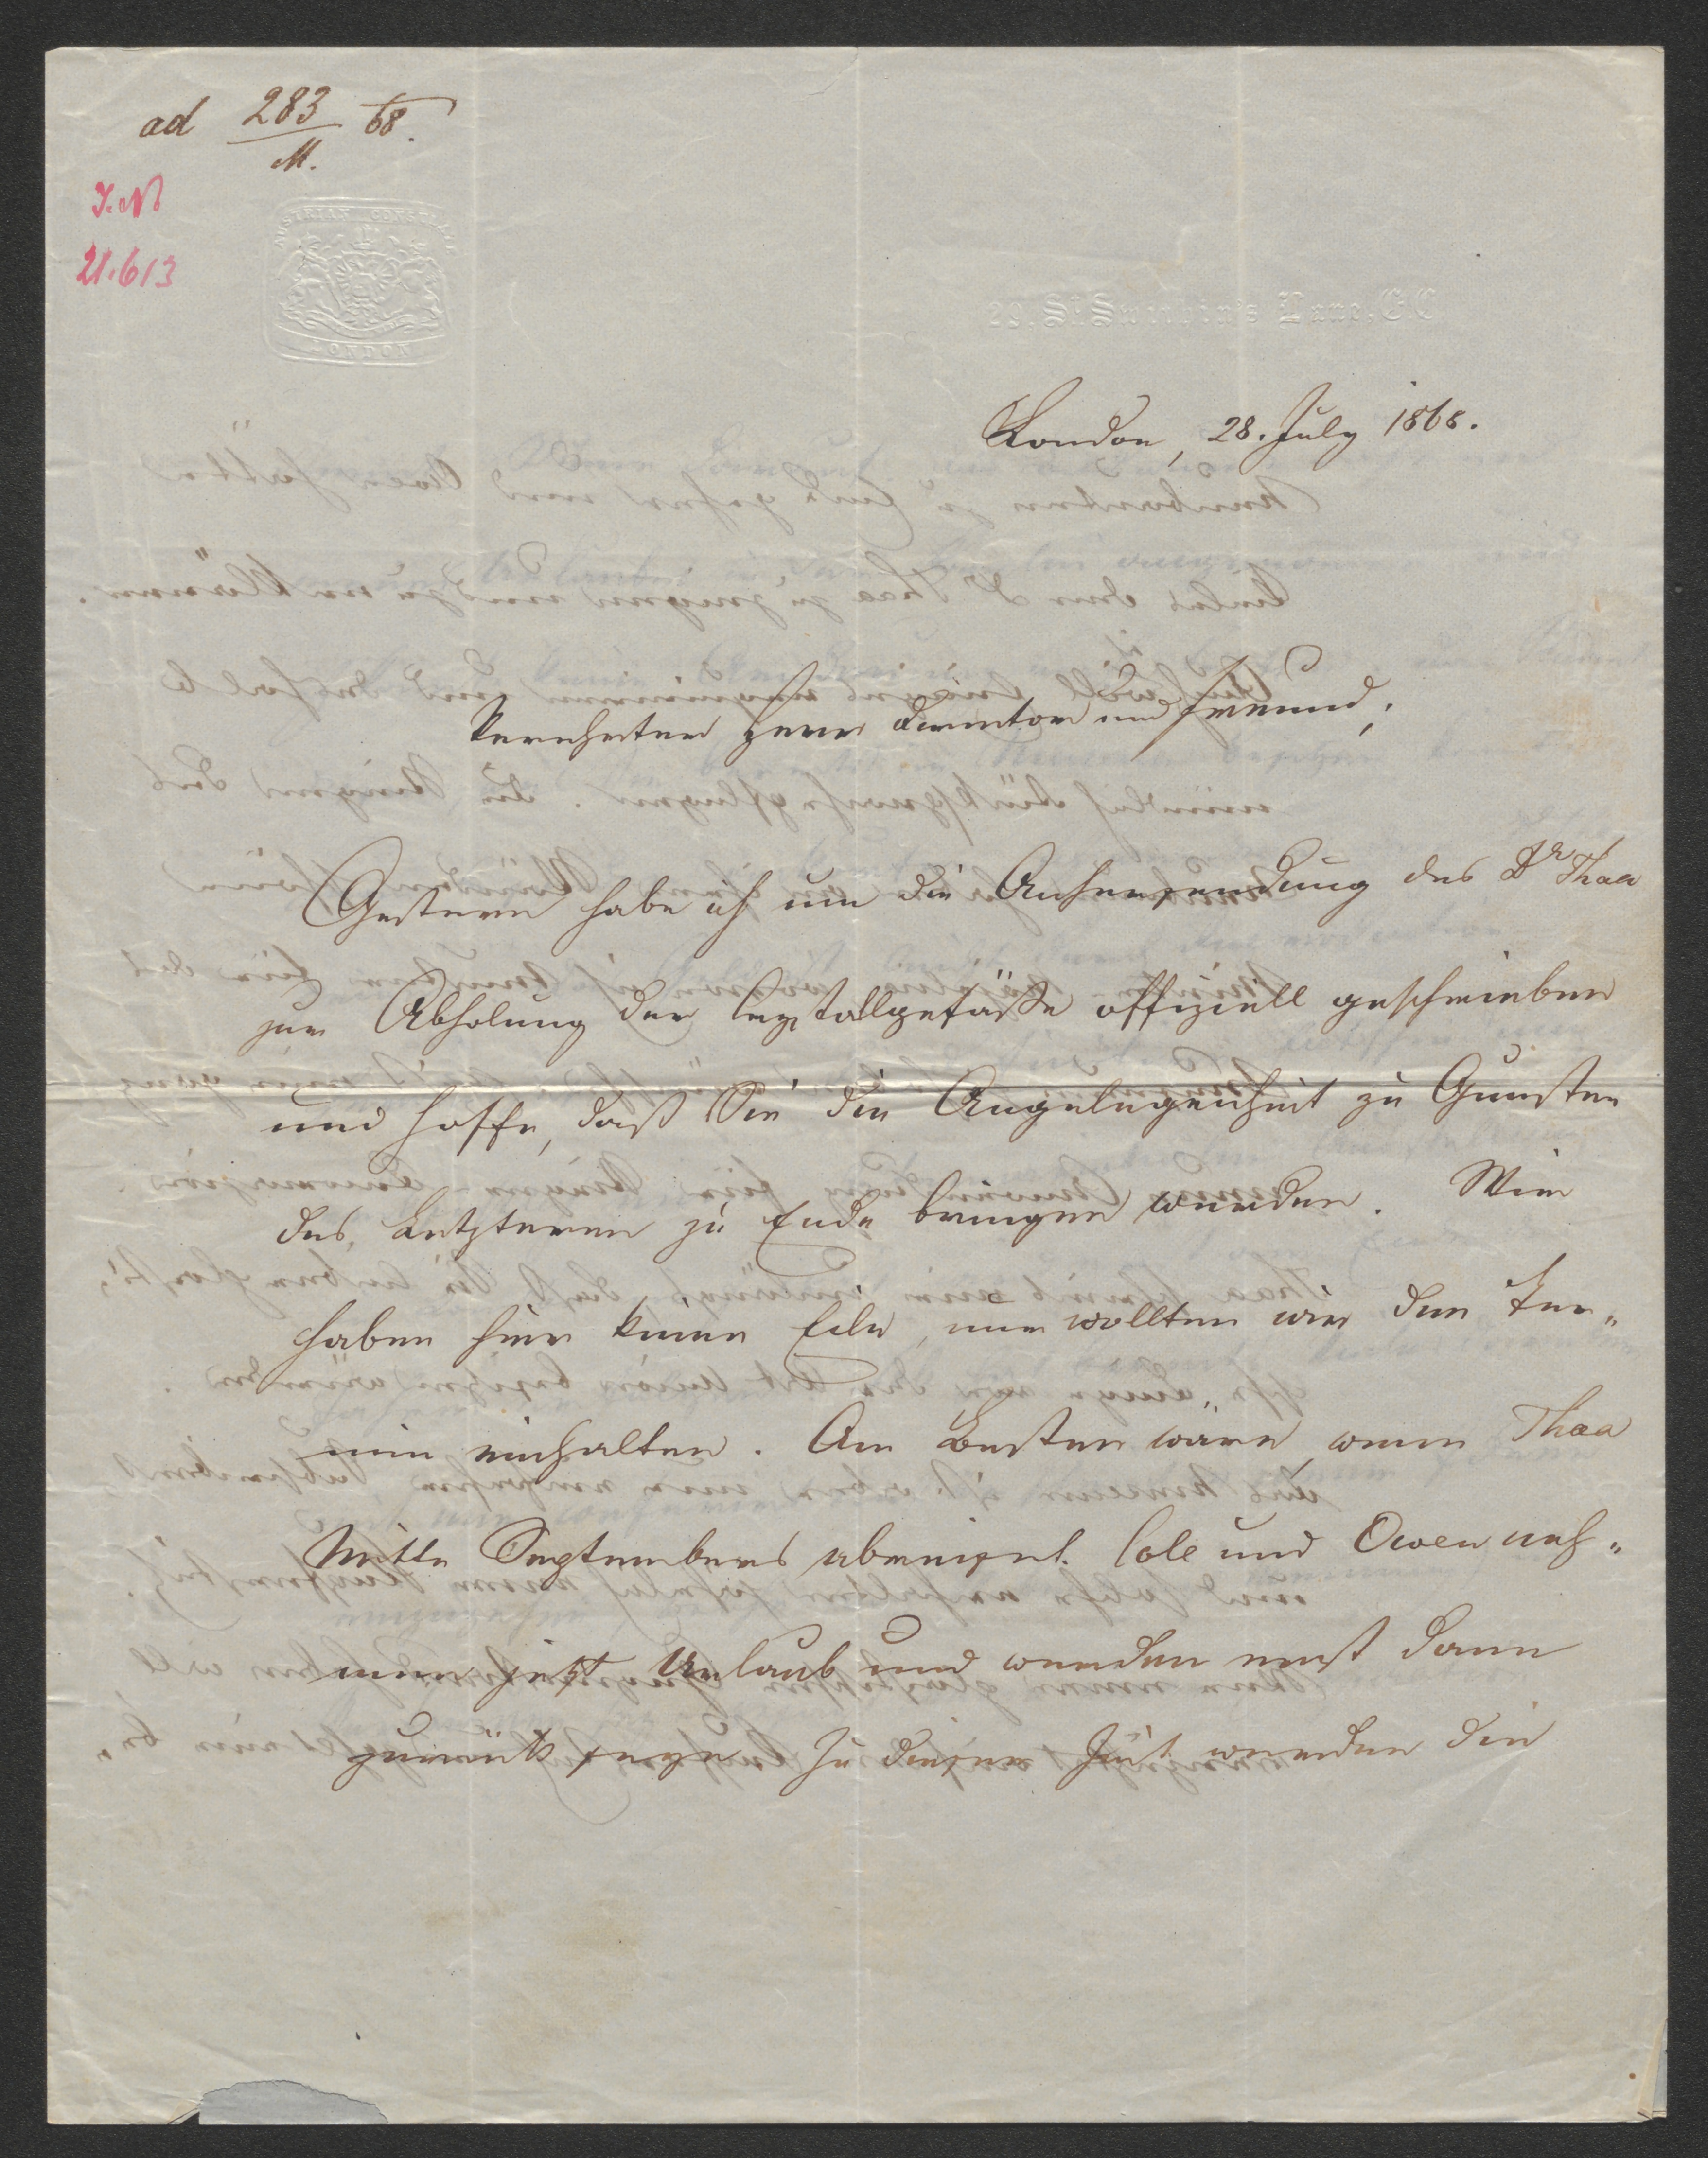 ad 283/M. 68.
I.N
21.613
AUSTRIAN CONSULATE
LONDON
29, St Swithin's Lane, E.C
London, 28. July 1868.
Verehrter Herr Direktor und Freund,
Gestern habe ich um die Anhersendung des Dr Thaa
zur Abholung der Crystallgefäße offiziell geschrieben
und hoffe, daß Sie die Angelegenheit zu Gunsten
des Letzteren zu Ende bringen werden. Wir
haben hier keine Eile, nur wollten wir den Ter„
min einhalten. Am Besten wäre, wenn Thaa
Mitte Septembers abreiset. Cole und Owen neh„
men jetzt Urlaub und werden erst dann
zurück seyn. Zu dieser Zeit werden die